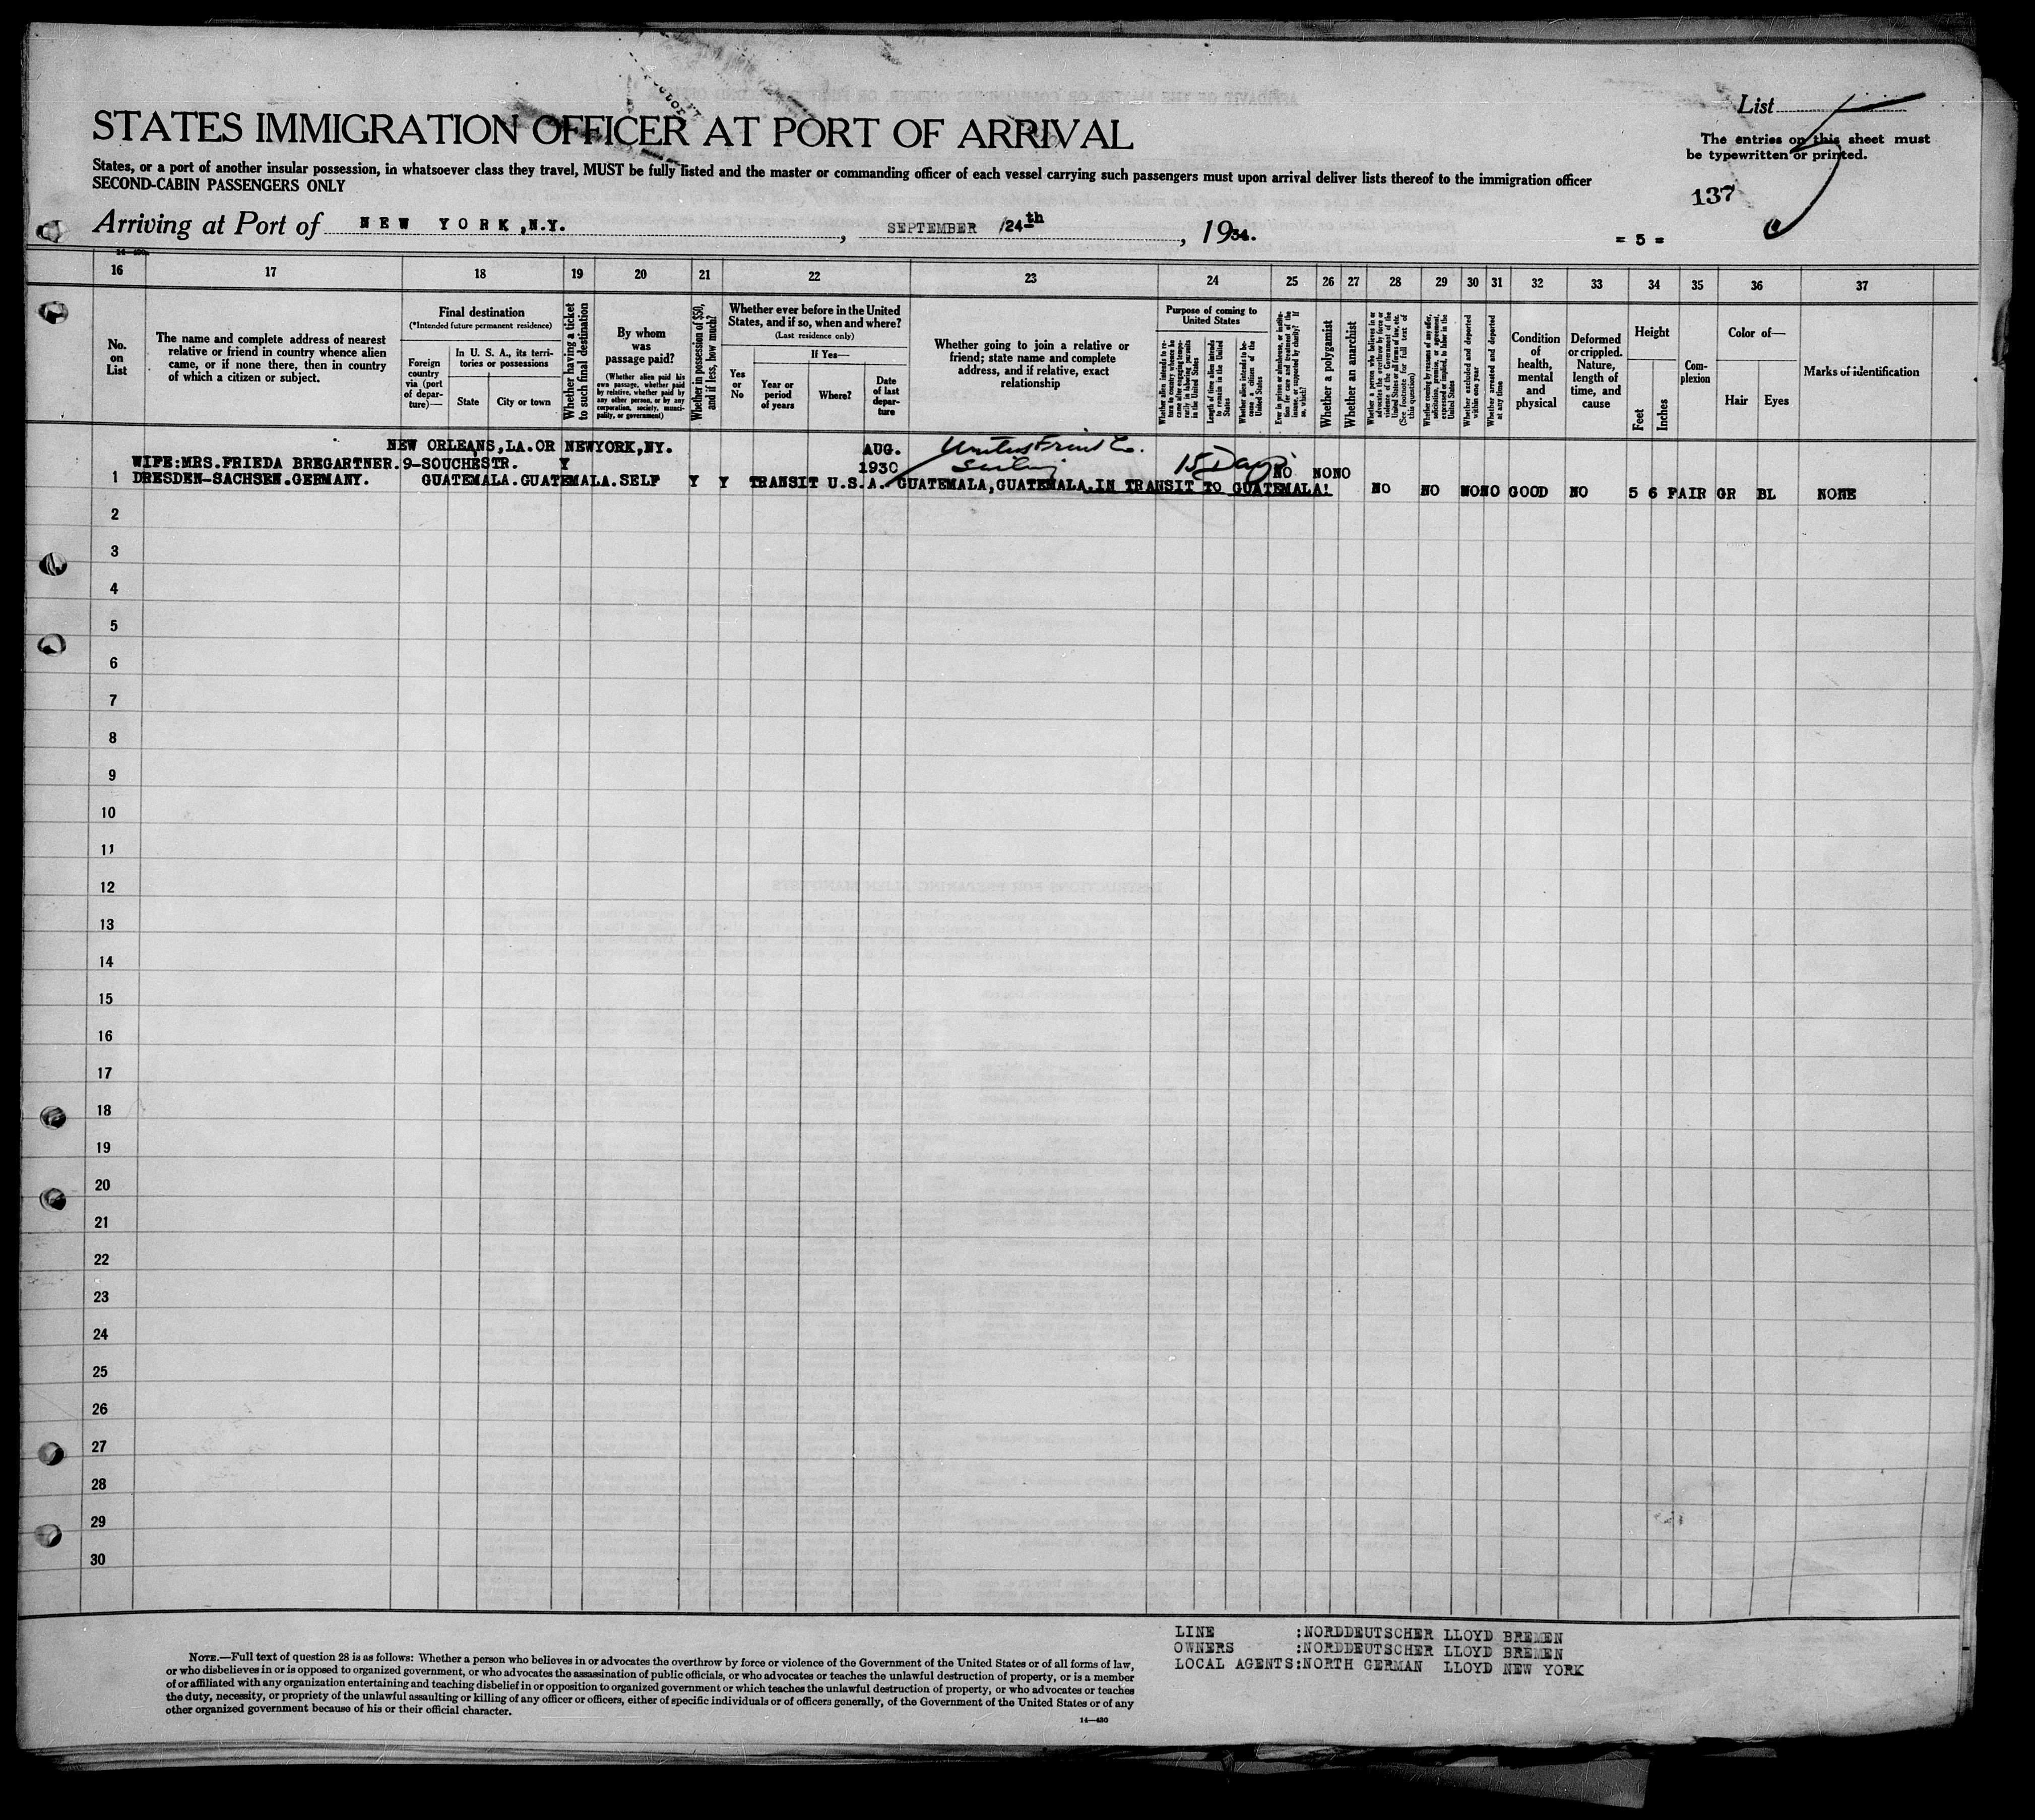 STATES IMMIGRATION OFFICER AT PORT OF ARRIVAL
States, or a port of another insular possession, in whatsoever class they travel, MUST be fully listed and the master or commanding officer of each vessel carrying such passengers must upon arrival deliver lists thereof to the immigration officer
SECOND-CABIN PASSENGERS ONLY
List
The entries on this sheet must
be typewritten or printed.
137
Arriving at Port of NEW YORK,N.Y., SEPTEMBER /24th, 1934.
= 5 =
16 17 18 19 20 21 22 23 24 25 26 27 28 29 30 31 32 33 34 35 36 37
No. on List
The name and complete address of nearest
relative or friend in country whence alien
came, or if none there, then in country
of which a citizen or subject.
Final destination
(*Intended future permanent residence)
Foreign country via (port of departure)—
In U. S. A., its territories or possessions
State
City or town
Whether having a ticket to such final destination
By whom was passage paid?
(Whether alien paid his own passage, whether paid by relative, whether paid by any other person, or by any corporation, society, municipality, or government)
Whether in possession of $50, and if less, how much?
Whether ever before in the United
States, and if so, when and where?
(Last residence only)
Yes or No
If Yes—
Year or period of years
Where?
Date of last departure
Whether going to join a relative or
friend; state name and complete
address, and if relative, exact
relationship
Purpose of coming to United States
Whether alien intends to return to country whence he came after engaging temporarily in laboring pursuits in the United States
Length of time alien intends to remain in the United States
Whether alien intends to become a citizen of the United States
Ever in prison or almshouse, or institution for care and treatment of the insane, or supported by charity? If so, which?
Whether a polygamist
Whether an anarchist
Whether a person who believes in or advocates the overthrow by force or violence of the Government of the United States or all forms of law, etc. (See footnote for full text of this question)
Whether coming by reasons of any offer, solicitation, promise, or agreement, expressed or implied, to labor in the United States
Whether excluded and deported within one year
Whether arrested and deported at any time
Condition of health, mental and physical
Deformed or crippled. Nature, length of time, and cause
Height
Feet
Inches
Complexion
Color of—
Hair
Eyes
Marks of identification
NEW ORLEANS,LA.OR NEWYORK,NY. AUG. United Fruit Co.
WIFE:MRS.FRIEDA BREGARTNER.9-SOUCHESTR. Y 1930 15 Days NO NONO
1 DRESDEN-SACHSEN.GERMANY. GUATEMALA.GUATEMALA.SELF Y Y TRANSIT U.S.A. GUATEMALA,GUATEMALA.IN TRANSIT TO GUATEMALA! NO NO NONO GOOD NO 5 6 FAIR GR BL NONE
2
3
4
5
6
7
8
9
10
11
12
13
14
15
16
17
18
19
20
21
22
23
24
25
26
27
28
29
30
NOTE.—Full text of question 28 is as follows: Whether a person who believes in or advocates the overthrow by force or violence of the Government of the United States or of all forms of law,
or who disbelieves in or is opposed to organized government, or who advocates the assassination of public officials, or who advocates or teaches the unlawful destruction of property, or is a member
of or affiliated with any organization entertaining and teaching disbelief in or opposition to organized government or which teaches the unlawful destruction of property, or who advocates or teaches
the duty, necessity, or propriety of the unlawful assaulting or killing of any officer or officers, either of specific individuals or of officers generally, of the Government of the United States or of any
other organized government because of his or their official character.
14—430
LINE :NORDDEUTSCHER LLOYD BREMEN
OWNERS :NORDDEUTSCHER LLOYD BREMEN
LOCAL AGENTS:NORTH GERMAN LLOYD NEW YORK